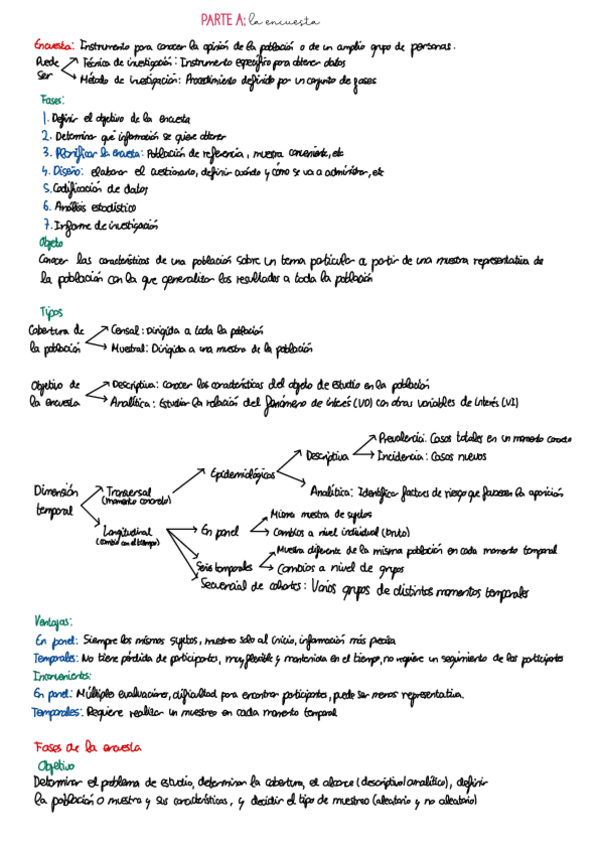 PARTE A: la encuesta
Encuesta: Instrumento para conocer la opinión de la población o de un amplio grupo de personas.
Puede Ser
Técnica de investigación: Instrumento específico para obtener datos
Método de investigación: Procedimiento definido por un conjunto de fases
Fases:
1. Definir el objetivo de la encuesta
2. Determinar qué información se quiere obtener
3. Planificar la encuesta: Población de referencia, muestra conveniente, etc
4. Diseño: elaborar el cuestionario, definir cuándo y cómo se va a administrar, etc
5. Codificación de datos
6. Análisis estadístico
7. Informe de investigación
Objeto
Conocer las características de una población sobre un tema particular a partir de una muestra representativa de
la población con la que generalizar los resultados a toda la población
Tipos
Cobertura de la población
Censal: Dirigida a toda la población
Muestral: Dirigida a una muestra de la población
Objetivo de la encuesta
Descriptiva: conocer las características del objeto de estudio en la población
Analítica: Estudiar la relación del fenómeno de interés (VD) con otras variables de interés (VI)
Dimensión temporal
Transversal (momento concreto)
Epidemiológicos
Descriptiva
Prevalencia: Casos totales en un momento concreto
Incidencia: Casos nuevos
Analítica: Identificar factores de riesgo que favorecen la aparición
Longitudinal (cambio en el tiempo)
En panel
Misma muestra de sujetos
Cambios a nivel individual (bruto)
Series temporales
Muestra diferente de la misma población en cada momento temporal
Cambios a nivel de grupos
Secuencial de cohortes: Varios grupos de distintos momentos temporales
Ventajas:
En panel: Siempre los mismos sujetos, muestreo solo al inicio, información más precisa
Temporales: No tiene pérdida de participantes, muy flexible y mantenida en el tiempo, no requiere un seguimiento de los participantes
Inconvenientes:
En panel: Múltiples evaluaciones, dificultad para encontrar participantes, puede ser menos representativa.
Temporales: Requiere realizar un muestreo en cada momento temporal
Fases de la encuesta
Objetivo
Determinar el problema de estudio, determinar la cobertura, el alcance (descriptivo/analítico), definir
la población o muestra y sus características, y decidir el tipo de muestreo (aleatorio y no aleatorio)